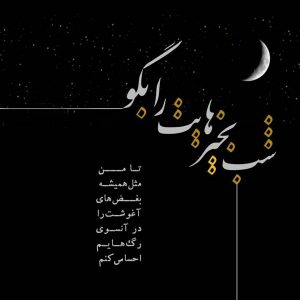 شب بخیر هایت را بگو
تا مــن
مثل همیشه
بغـض های
آغوشت را
در آنسوی
رگ هـایـم
احساس کنم